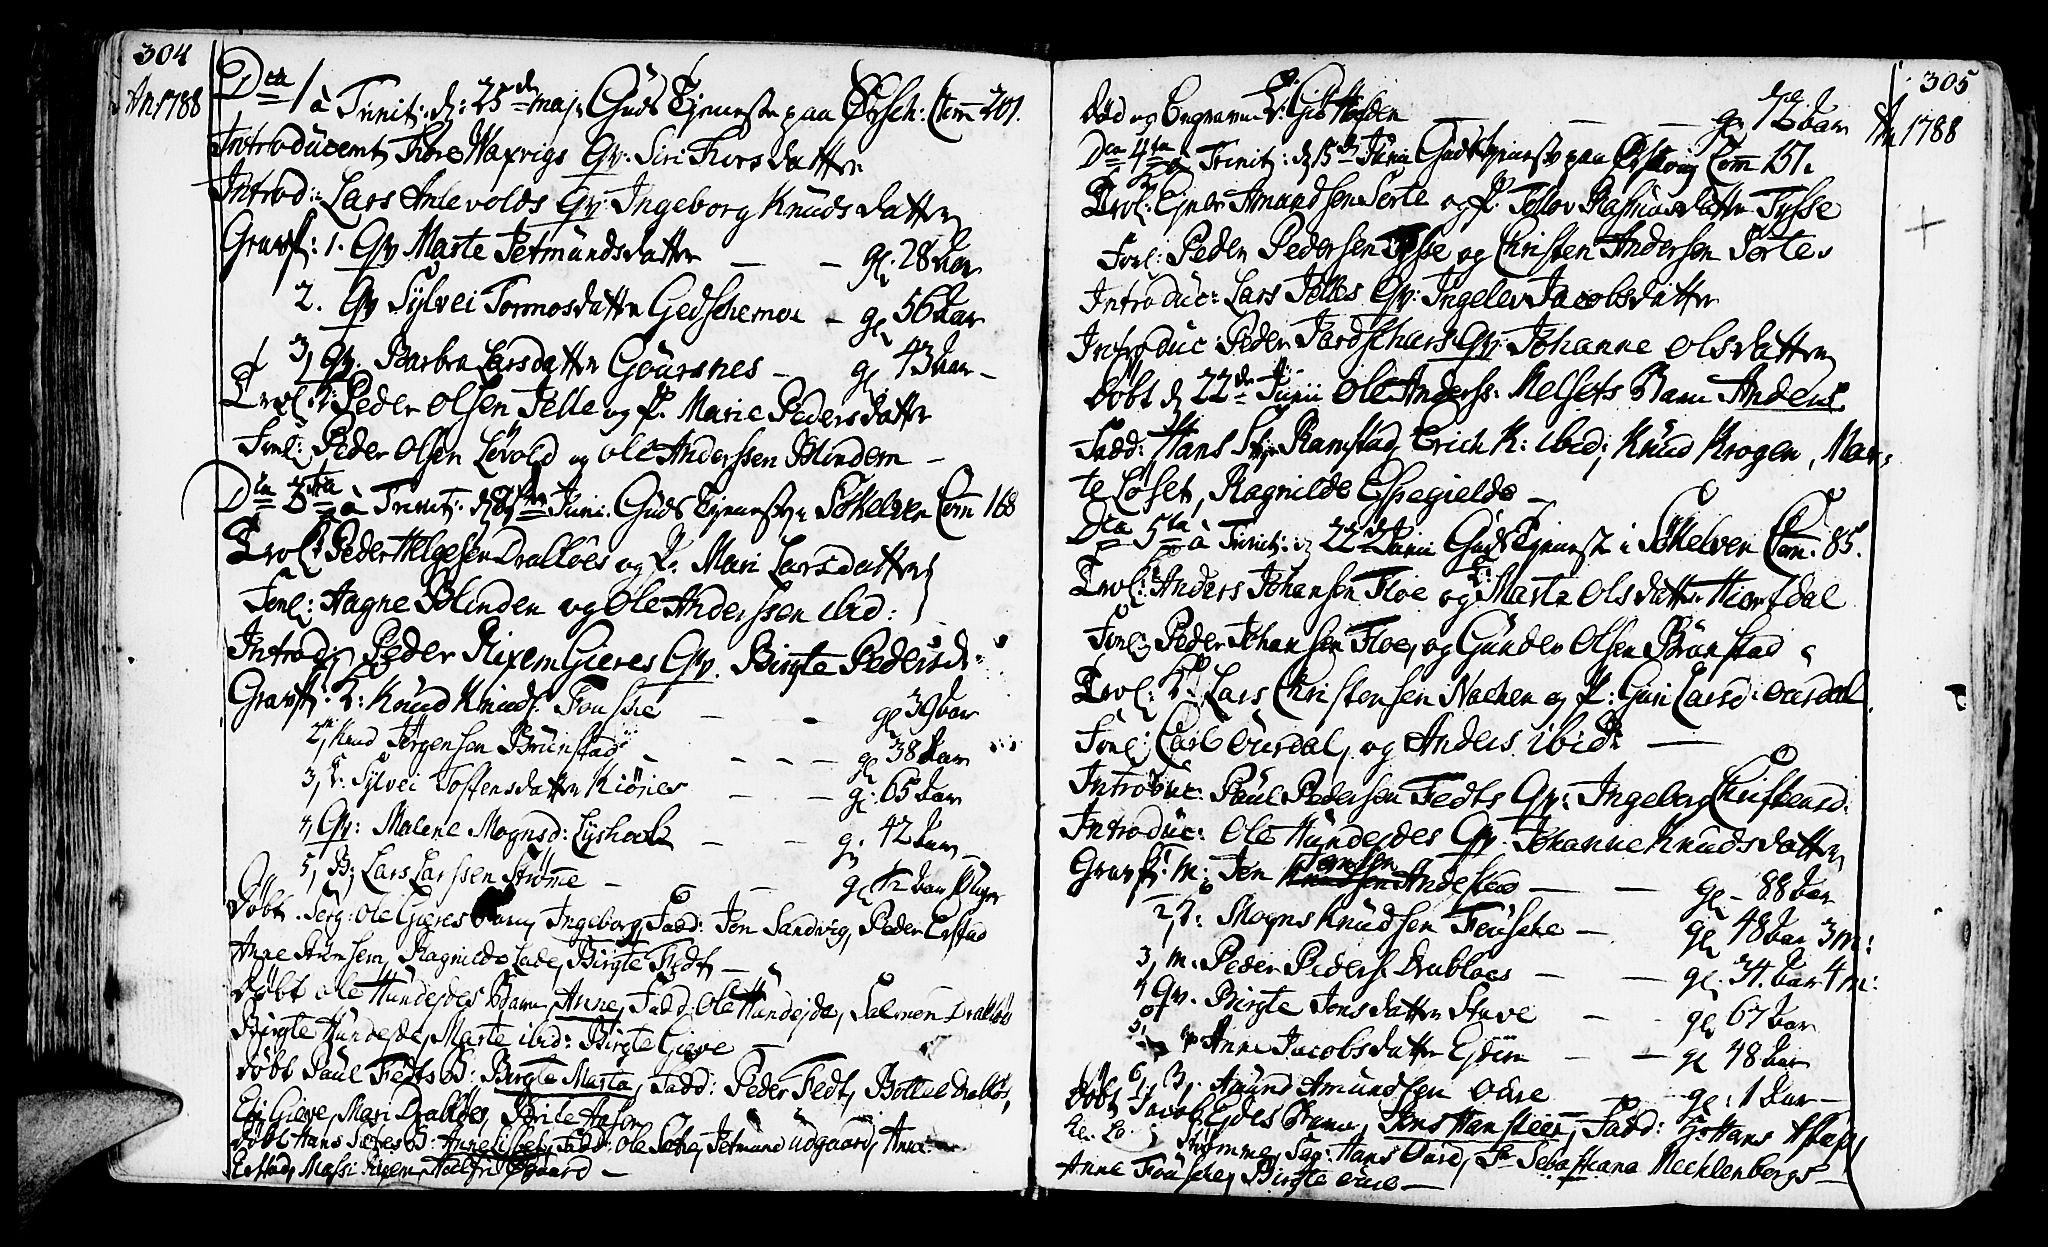 304
An 1788
Dca 1 à Trinit: d: 25de maji Guds Tjeneste paa Ørsch: Com 201.
Introducent Tore Waxvigs Qv: Siri Torsdatter
Introd: Lars Anlevolds Qv: Ingeborg Knudsdatter
Gravf: 1. Qv Marte Jetmundsdatter — — gl. 28 aar
2. Qv Sylvei Tormosdatter Gedschemoe — gl 56 aar
3, Qv. Barbra Larsdatter Goursnes — gl 43 aar —
Trol: K: Peder Olsen Jelle og P. Marie Pedersdatter
Forl: Peder Olsen Løvold og Ole Anderssen Blindem —
Dca 3tia à Trinit: Junii. Guds Tjeneste i Søhelven Com 168
Trol: Peder Helgesen Drabløes og P. Mari Larsdatter
Forl: Aagne Blinden og Ole Anderssen ibid:
Introd: Peder Rixem Gieres Qv. Birgte Pedersd:
Gravf: K: Knud Knuds. Fouske — — gl 39 aar
2, Knud Jørgensen Brunstad — — — gl 38 aar
3, Sylvei Tostensdatter Kiønes — — gl: 65 aar
4, Qv: Malene Mognsd: Lyshoel — — gl 42 aar —
5, B; Lars Larssen Strømme — — gl 1/2 aar
Døbt. Serg: Ole Gieres Barn, Ingeborg, Fadd: Jon Sandvig, Peder Erstad
Anne Strømsem, Ragnilde Lade, Birgte Fedt —
Døbt Ole Hundejdes Barn, Anne, Fadd: Ole Hundejde, Salmon Drabløs
Birgte Hundejde, Marte ibid: Birgte Gieve —
Døbt Paul Fedts B: Birgte Marta, Fadd: Peder Fedt, Bottel Drabløs,
Gieve, Mari Drabløes,
Døbt Hans Sætres B: Annelisbet, Fadd: Ole Sætre, Jetmund Udgaard, Anne
Erstad, Massi Rixem,
305
An 1788
død og Begraven — — — gl 72 aar
Dca 4ta à Trinit: d 15de Junii Guds Tjeneste paa Ørschoug Com 151.
Trol: Ejner Amundsen Sorte og P. Tellov Rasmusdatter Tysse
Forl: Peder Pedersen Tysse og Christen Andersen Sorte.
Introduc: Lars Jelles Qv: Ingelev Jacobsdatter
Introduc: Peder Jardschars Qv: Johanne Olsdatter
Døbt d 22de Junii Ole Anderss: Melsets Barn Anders.
Fadd: Hans Ramstad, Erich K: ibid; Knud Krogen, Mar-
te Løset, Ragnilde Espegielde —
Dca 5ta à Trinit: d 22de Junii Guds Tjeneste i Søhelven Com. 85.
Trol: Anders Johansen Floe og P: Marta Olsdatter Hiortdal
Forl: Peder Johansen Floe, og Gunder Olsen Brunstad
Trol: K. Lars Christensen Nachen og P: Guri Larsd: Ourdal.
Forl: Carl Ourdal, og Anders ibid: —
Introduc: Paul Pedersen Fedts Qv: Ingeborg Christensd:
Introduc: Ole Hundejdes Qv: Johanne Knudsdatter
Gravf: m: Jon Jonsen Andestad — — gl — 88 aar
2, Mogns Knudsen Fouske — gl 48 aar 3 m:
3, m. Peder Peders. Drabloes — — gl. 34. aar 4 m:
4 Qv. Birgte Jonsdatter Stave — — gl 67 aar
5, Anne Jacobsdatter Ejdem — — gl 48 aar
6, B, Amund Amundsen Oure — — gl: 1 aar —
Døbt Jacob Ejdes Barn, Jens Hansteen, Fadd: Hans
Strømme, Hans Oure, Sebastiana Mecklenbergs —
Anne Fouske, Birgte Oure —